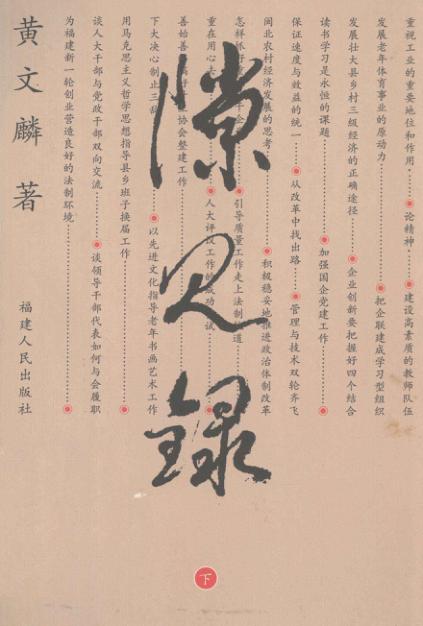 重视工业的重要地位和作用 论精神 建设高素质的教师队伍
发展老年体育事业的原动力 把企联建成学习型组织
发展壮大县乡村三级经济的正确途径 企业创新要把握好四个结合
读书学习是永恒的课题 加强国企党建工作
保证速度与效益的统一 从改革中找出路 管理与技术双轮齐飞
闽北农村经济发展的思考 积极稳妥地推进政治体制改革
怎样抓好 引导质量工作走上法制轨道
重在用心 人大评议工作的成功
善始善 协会整建工作
下大决心制止三乱 以先进文化指导老年书画艺术工作
用马克思主义哲学思想指导县乡班子换届工作
谈人大干部与党政干部双向交流 谈领导干部代表如何与会履职
为福建新一轮创业营造良好的法制环境
隙见录
下
黄文麟著
福建人民出版社